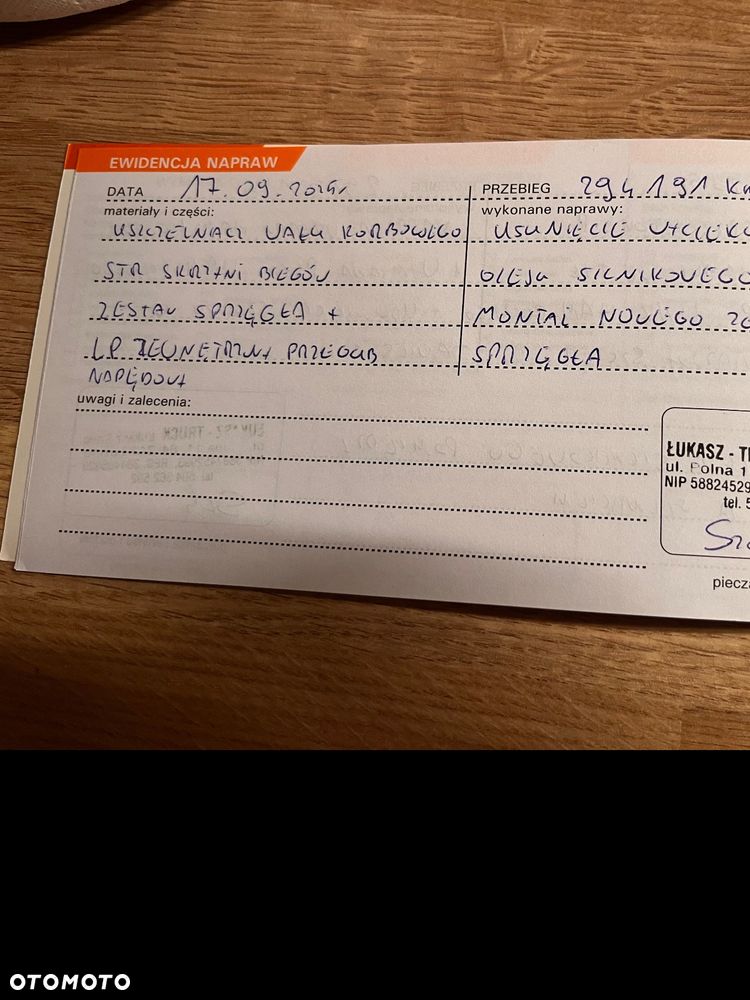 EWIDENCJA NAPRAW
DATA 17.09.2024r PRZEBIEG 294 191 Km
materiały i części: wykonane naprawy:
USZCZELNIACZ WAŁU KORBOWEGO USUNIĘCIE WYCIEKU
STR SKRZYNI BIEGÓW OLEJU SILNIKOWEGO
ZESTAW SPRZĘGŁA + MONTAŻ NOWEGO ZE
LP ZEWNĘTRZNY PRZEGUB SPRZĘGŁA
NAPĘDOWY
uwagi i zalecenia:
ŁUKASZ - T
ul. Polna 1
NIP 58824529
tel. 5
piecz
OTOMOTO